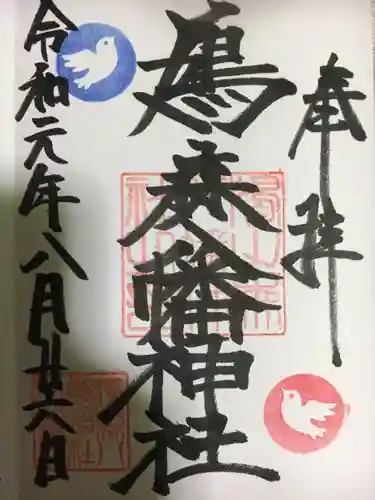 奉拝
鳩森八幡神社
令和元年八月廿六日